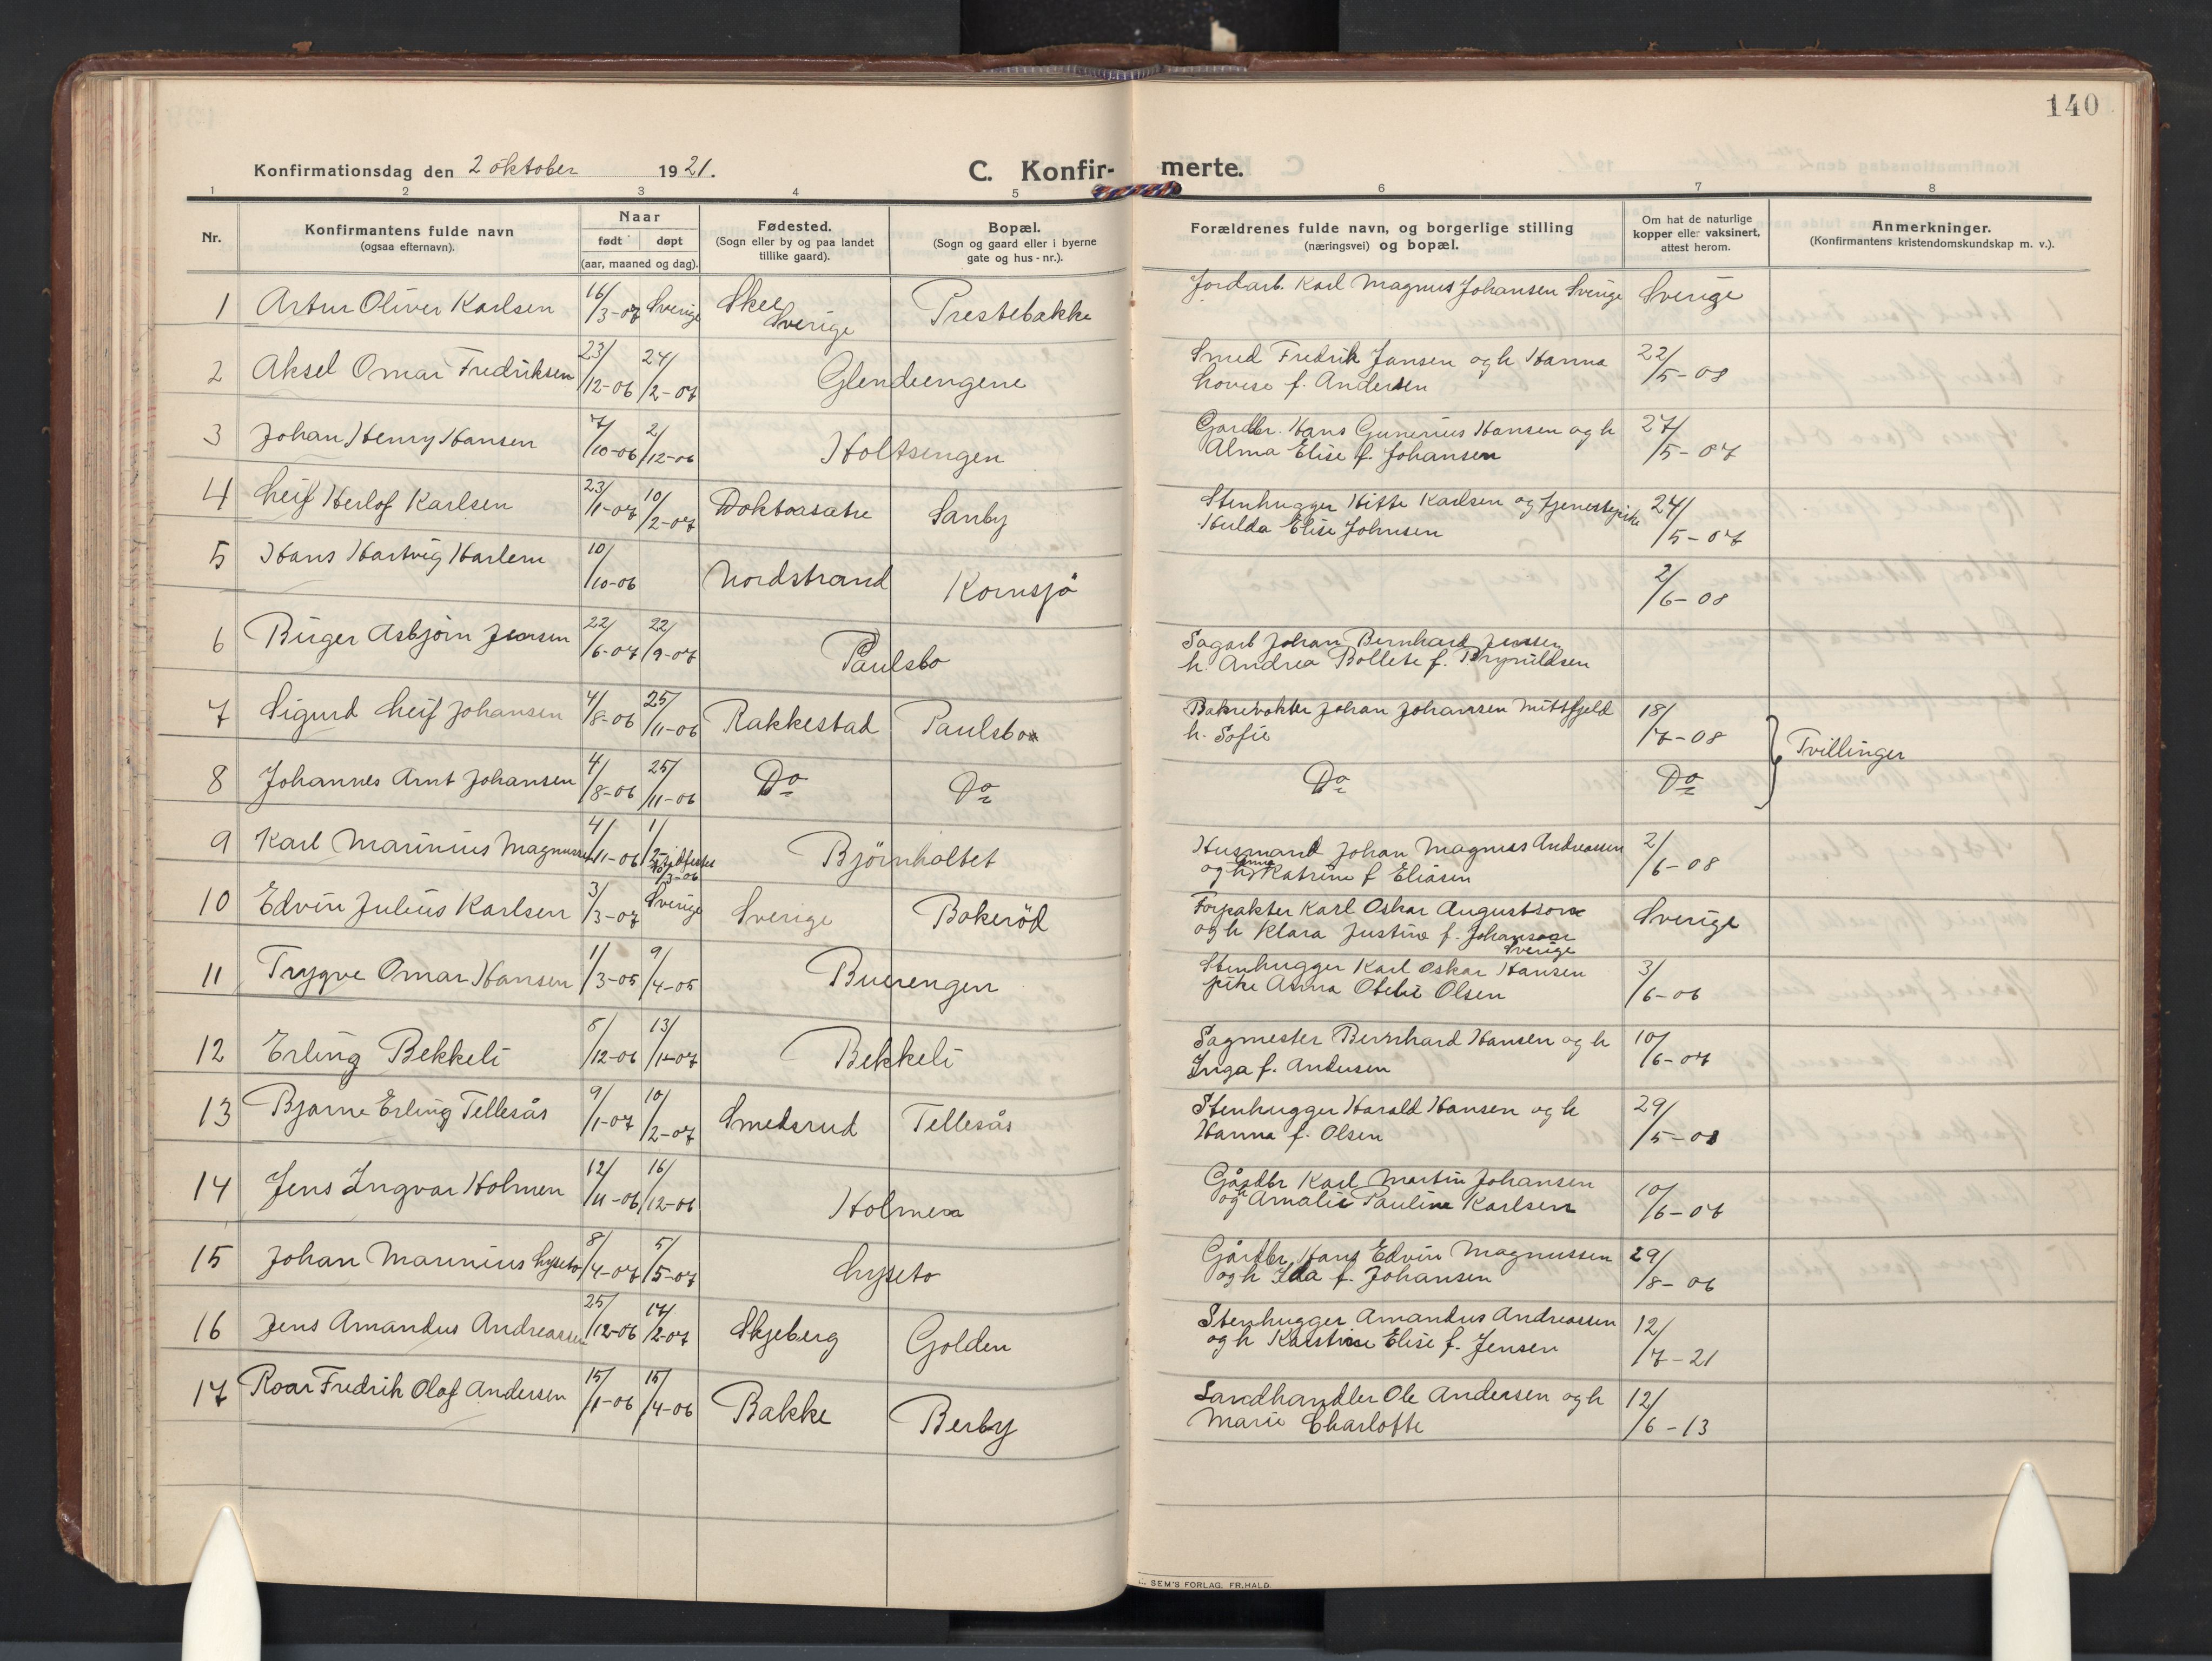 140
Konfirmationsdag den 2 oktober 1921. C. Konfir- merte.
1 2 3 4 5 6 7 8
Nr.
Konfirmantens fulde navn
(ogsaa efternavn).
Naar
født døpt
(aar, maaned og dag).
Fødested.
(Sogn eller by og paa landet
tillike gaard).
Bopæl.
(Sogn og gaard eller i byerne
gate og hus-nr.).
Forældrenes fulde navn, og borgerlige stilling
(næringsvei) og bopæl.
Om hat de naturlige
kopper eller vaksinert,
attest herom.
Anmerkninger.
(Konfirmantens kristendomskundskap m. v.).
1 Artur Oliver Karlsen 16/3-07 Sverige Skee Sverige Prestebakke Jordarb. Karl Magnus Johansen Sverige Sverige
2 Aksel Omar Fredriksen 23/12-06 24/2-07 Glendeengene Smed Fredrik Jansen og h Hanna
Lovise f. Andersen 22/5-08
3 Johan Henry Hansen 7/10-06 2/12-06 Holtsengen Gardbr. Hans Gunerius Hansen og h
Alma Elise f. Johansen 27/5-07
4 Leif Herlof Karlsen 23/1-07 10/2-07 Doktorsætre Sanby Stenhugger Hitte Karlsen og tjenestepike
Hulda Elise Johnsen 24/5-07
5 Hans Hartvig Harlem 10/10-06 Nordstrand Kornsjö 2/6-08
6 Birger Asbjörn Jensen 22/6-07 22/9-07 Paulsbo Sagarb Johan Bernhard Jensen
h. Andrea Bollete f. Brynildsen
7 Sigurd Leif Johansen 4/8-06 25/11-06 Rakkestad Paulsbo Banevokter Johan Johansen Mittfjeld
h. Sofie 18/7-08
Tvillinger
8 Johannes Arnt Johansen 4/8-06 25/11-06 Do Do Do Do
9 Karl Marinius Magnussen 4/11-06 Björnholtet Husmand Johan Magnus Andreassen
og h Anna Katrine f Eliasen 2/6-08
10 Edvin Julius Karlsen 3/3-07 Sverige Sverige Bokeröd Forpakter Karl Oskar Augustson
og h Klara Justine f. Johanson
Sverige Sverige
11 Trygve Omar Hansen 1/3-05 9/4-05 Buerengen Stenhugger Karl Oskar Hansen
pike Anna Otelie Olsen 3/6-06
12 Erling Bekkeli 8/12-06 13/1-07 Bekkeli Sagmester Bernhard Hansen og h
Inga f. Andersen 10/6-07
13 Bjarne Erling Tellesås 9/1-07 10/2-07 Smedsrud Tellesås Stenhugger Harald Hansen og h
Hanna f. Olsen 29/5-08
14 Jens Ingvar Holmen 12/11-06 16/12-06 Holmen Gårdbr Karl Martin Johansen
og h Amalie Pauline Karlsen 10/6-07
15 Johan Marinius Lyseto 8/4-07 5/5-07 Lyseto Gårdbr. Hans Edvin Magnussen
og h Ida f. Johansen 29/8-06
16 Jens Amandus Andreassen 25/12-06 17/2-07 Skjeberg Golden Stenhugger Amandus Andreassen
og h Karstine Elise f. Jensen 12/7-21
17 Roar Fredrik Olaf Andersen 15/1-06 15/4-06 Bakke Berby Landhandler Ole Andersen og h
Marie Charlotte 12/6-13
SEM'S FORLAG, FR.HALD